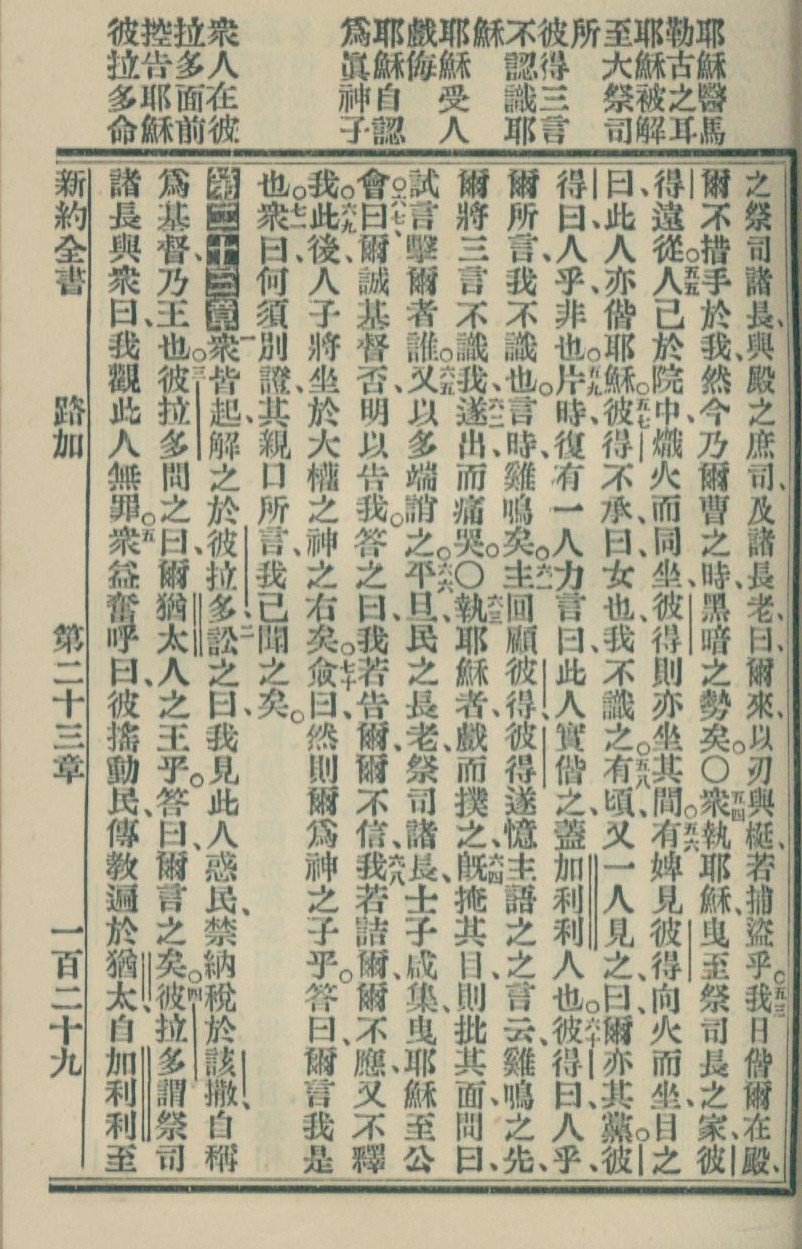 耶穌醫馬
勒古之耳
耶穌被解
至大祭司
所
彼得三言
不認識耶
穌
耶穌受人
戲侮
耶穌自認
爲眞神子
衆人在彼
拉多面前
控告耶穌
彼拉多命
之祭司諸長、與殿之庶司、及諸長老曰、爾來、以刃與梃、若捕盜乎。五三我日偕爾在殿、
爾不措手於我、然今乃爾曹之時、黑暗之勢矣。〇五四衆執耶穌、曳至祭司長之家、彼
得遠從。五五人已於院中熾火而同坐、彼得則亦坐其間。五六有婢見彼得向火而坐、目之
曰、此人亦偕耶穌。五七彼得不承、曰、女也、我不識之。五八有頃、又一人見之、曰、爾亦其黨。彼
得曰、人乎、非也。五九片時、復有一人力言曰、此人實偕之、蓋加利利人也。六十彼得曰、人乎、
爾所言、我不識也。言時、雞鳴矣。六一主回顧彼得、彼得遂憶主語之之言云、雞鳴之先、
爾將三言不識我、六二遂出而痛哭。〇六三執耶穌者、戲而撲之、六四旣掩其目、則批其面、問曰、
試言擊爾者誰。六五又以多端誚之。六六平旦、民之長老、祭司諸長、士子咸集、曳耶穌至公
會曰、六七爾誠基督否、明以告我。答之曰、我若告爾、爾不信、六八我若詰爾、爾不應、又不釋
我。六九此後、人子將坐於大權之神之右矣。七十僉曰、然則爾爲神之子乎。答曰、爾言我是
也。七一衆曰、何須別證、其親口所言、我已聞之矣。
第二十三章一衆皆起、解之於彼拉多、二訟之曰、我見此人惑民、禁納稅於該撒、自稱
爲基督、乃王也。三彼拉多問之曰、爾猶太人之王乎。答曰、爾言之矣。四彼拉多謂祭司
諸長與衆曰、我觀此人無罪。五衆益奮呼曰、彼搖動民、傳敎遍於猶太、自加利利至
新約全書 路加 第二十三章 一百二十九